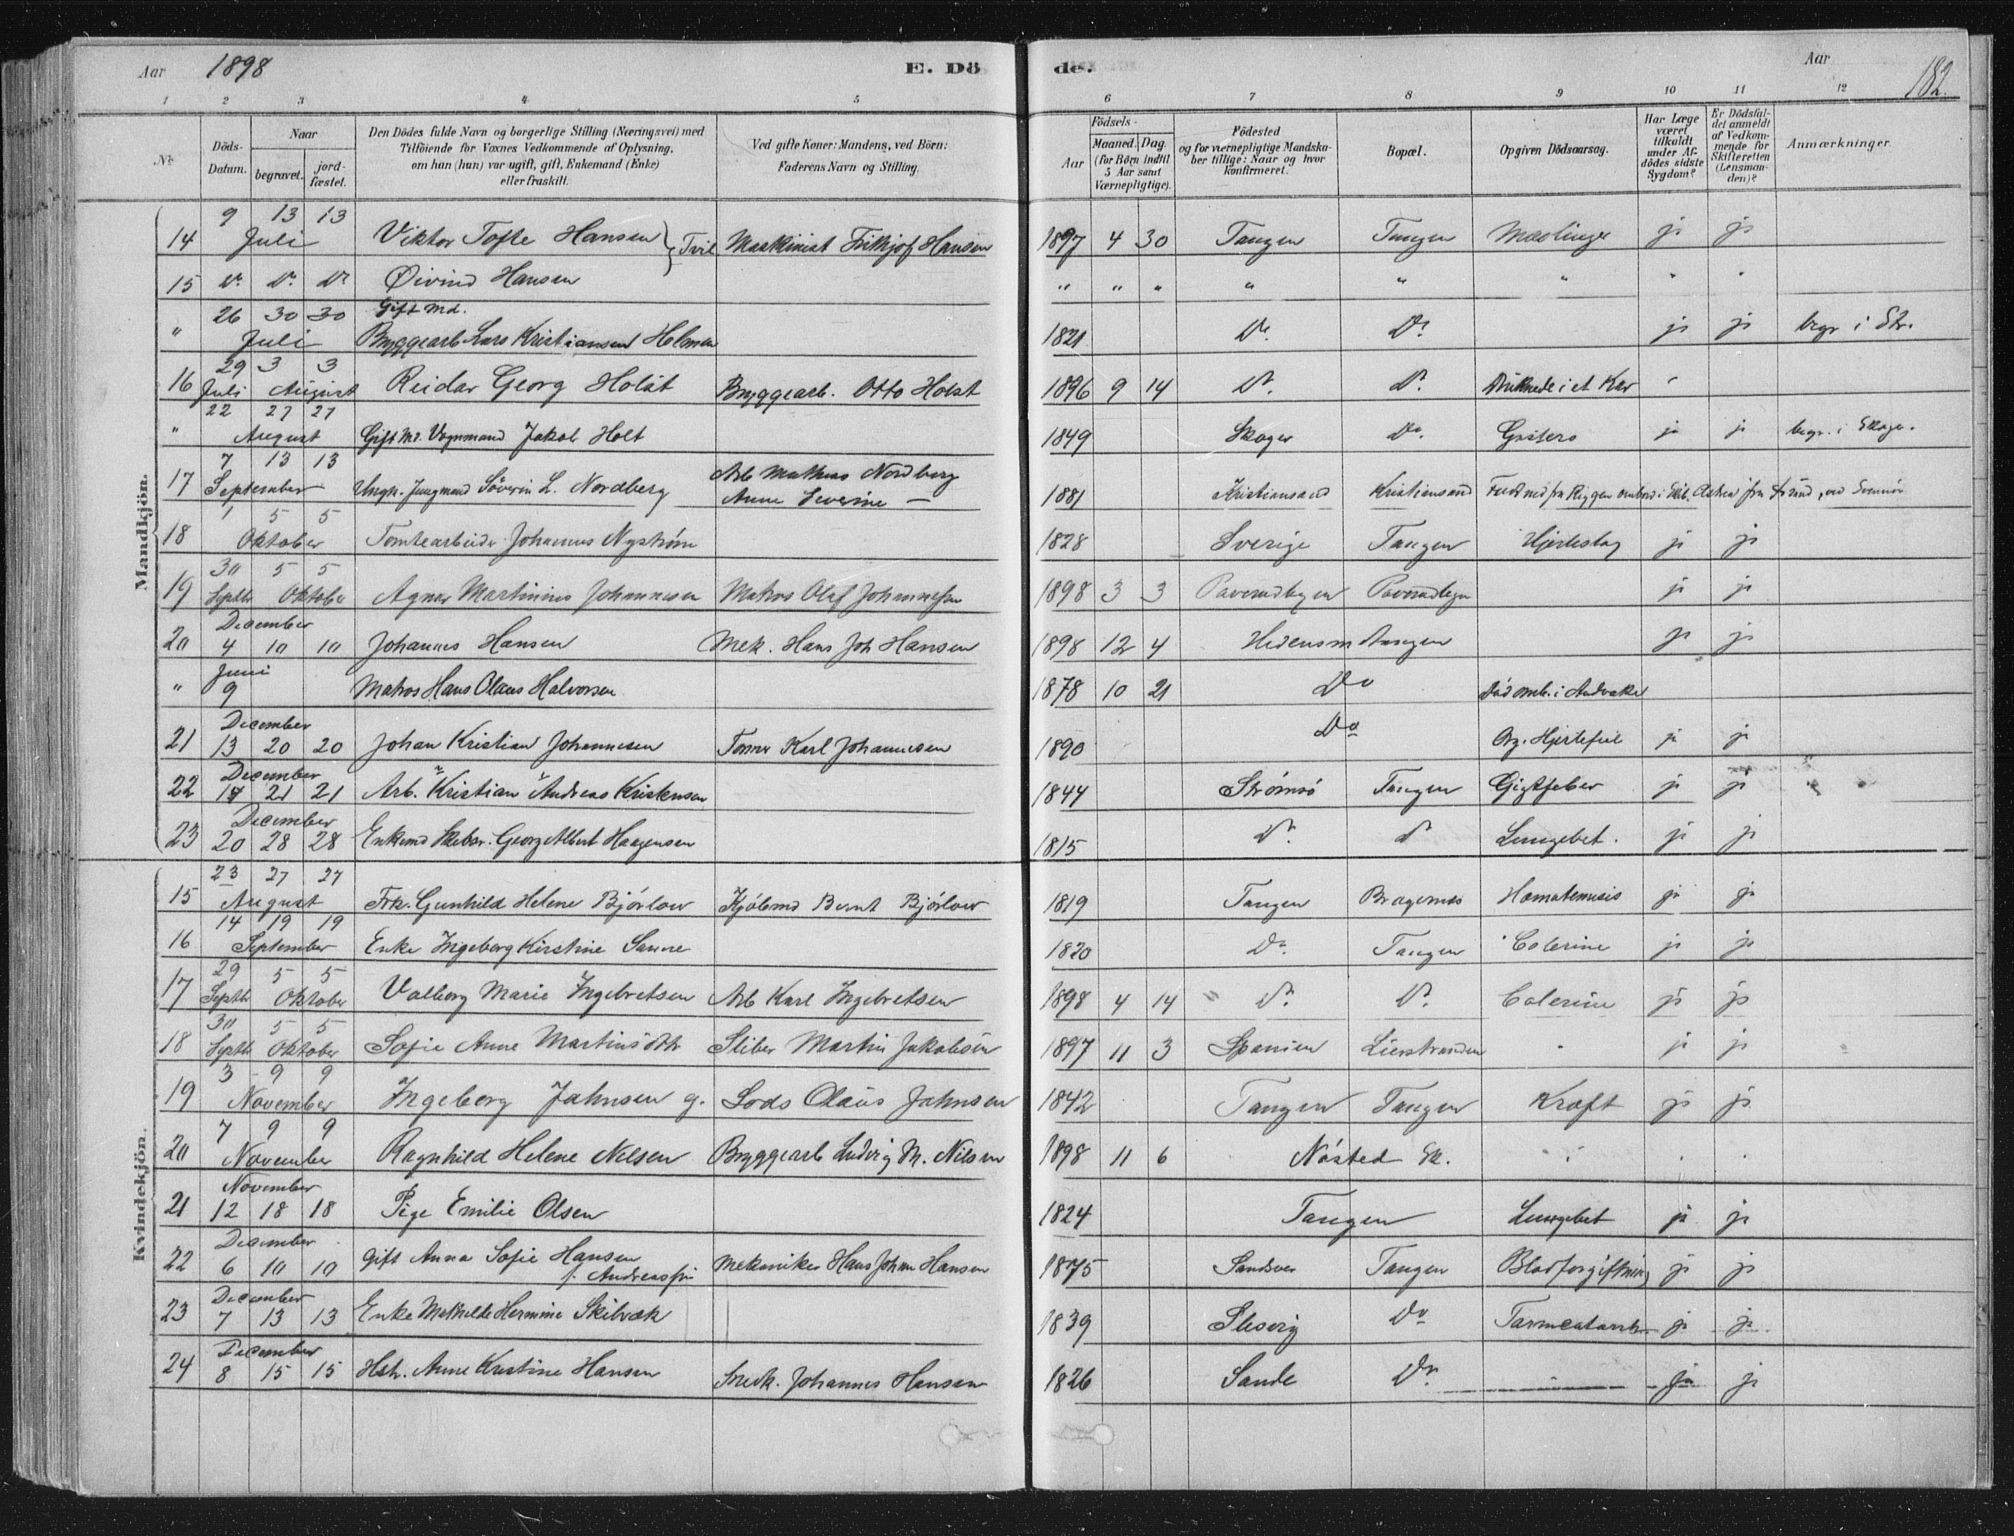 Aar 1898 E. Döde. Aar 182.
1 2 3 4 5 6 7 8 9 10 11 12
Nr. Döds-Datum. Naar begravet. jordfæstet. Den Dödes fulde Navn og borgerlige Stilling (Næringsvei) med Tilföiende for Voxnes Vedkommende af Oplysning, om han (hun) var ugift, gift, Enkemand (Enke) eller fraskilt. Ved gifte Koner: Mandens, ved Börn: Faderens Navn og Stilling. Födsels- Aar Maaned. Dag. (for Börn indtil 5 Aar samt Værnepligtige). Födested og for værnepligtige Mandskaber tillige: Naar og hvor konfirmeret. Bopæl. Opgiven Dödsaarsag. Har Læge været tilkaldt under Afdödes sidste Sygdom? Er Dödsfaldet anmeldt af Vedkommende for Skifteretten (Lensmanden)? Anmærkninger.
Mandkjön.
14 9 13 13 Juli Viktor Tofte Hansen } Tvil Maskinist Frithjof Hansen 1897 4 30 Tangen Tangen Mæslinge ja ja
15 Do Do Do Øivind Hansen " " " " " " " "
" 26 30 30 Juli Gift Md. Byggearb Lars Kristiansen Holmen 1821 Do Do ja ja begr i Str.
16 29 Juli 3 3 August Reidar Georg Holst Byggearb. Otto Holst 1896 9 14 Do Do Druknede i et Kar
" 22 27 27 August Gift Md. Vognmand Jakob Holt 1849 Skoger Do ja ja begr. i Skoger.
17 7 13 13 September Ungk. Jungmand Söverin L. Nordberg Arb Mathias Nordberg Anne Severine — 1881 Kristiansand Kristiansand Faldt ned fra Riggen ombord i Skib. Astrea fra
18 1 5 5 Oktober Tomtearbeider Johannes Nyström 1828 Sverige Tangen Hjerteslag ja ja
19 30 Septbr 5 5 Oktober Agner Martinius Johannesen Matros Olaf Johannesen 1898 3 3 ja ja
20 December 4 10 10 Johannes Hansen Mek. Hans Joh Hansen 1898 12 4 Tangen ja ja
" Juni 9 Matros Hans Olaus Halvorsen 1878 10 21 Do Död omb. i
21 December 13 20 20 Johan Kristian Johannesen Karl Johannesen 1890 Do Hjertefeil ja ja
22 December 17 21 21 Arb. Kristian Andreas Kristensen 1844 Strømsø Tangen Gigtfeber ja ja
23 December 20 28 28 Enkemd Georg Albert Haagensen 1815 Do Do Lungebet. ja ja
Kvindekjön.
15 23 27 27 August Frk. Gunhild Helene Björlow Kjöbmd Bernt Björlow 1819 Tangen Bragernes Hæmatemesis ja ja
16 14 19 19 September Enke Ingeborg Kirstine Sanne 1820 Do Tangen Colerine ja ja
17 29 Septbr 5 5 Oktober Valborg Marie Ingebretsen Arb Karl Ingebretsen 1898 4 14 Do Do Colerine ja ja
18 30 Septbr 5 5 Oktober Sofie Anne Martinsdtr Sliber Martin Jakobsen 1897 11 3 Spanien Lierstranden ja ja
19 3 9 9 November Ingeborg Jahnsen g. Lods Olaus Jahnsen 1842 Tangen Tangen Kræft ja ja
20 7 9 9 November Ragnhild Helene Nilsen Byggearb Ludvig M. Nilsen 1898 11 6 Nösted Sk.
21 November 12 18 18 Pige Emilie Olsen 1824 Tangen Lungebet ja ja
22 December 6 10 10 Gift Anna Sofie Hansen f. Mekaniker Hans Johan Hansen 1875 Sandsver Tangen Blodforgiftning ja ja
23 December 7 13 13 Enke Mathilde Hermine Skilvæk 1839 Slesvig Do Tarmcatarrh ja ja
24 December 8 15 15 Hstr. Anne Kristine Hansen Snedk. Johannes Hansen 1826 Sande Do ja ja